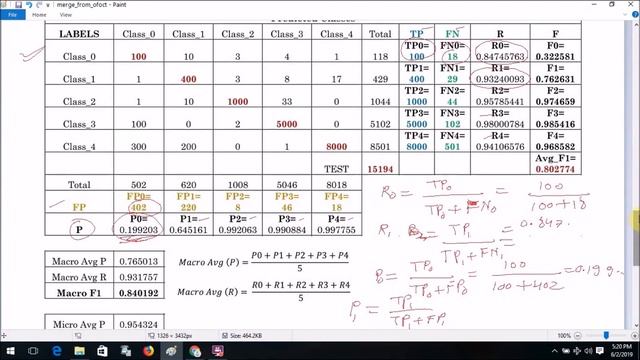 merge_from_ofoct - Paint
Predicted Classes
LABELS Class_0 Class_1 Class_2 Class_3 Class_4 Total TP FN R F
Class_0 100 10 3 4 1 118 TP0= 100 FN0= 18 R0= 0.84745763 F0= 0.322581
Class_1 1 400 3 8 17 429 TP1= 400 FN1= 29 R1= 0.93240093 F1= 0.762631
Class_2 1 10 1000 33 0 1044 TP2= 1000 FN2= 44 R2= 0.95785441 F2= 0.974659
Class_3 100 0 2 5000 0 5102 TP3= 5000 FN3= 102 R3= 0.98000784 F3= 0.985416
Class_4 300 200 0 1 8000 8501 TP4= 8000 FN4= 501 R4= 0.94106576 F4= 0.968582
TEST 15194 Avg_F1= 0.802774
Total 502 620 1008 5046 8018
FP FP0= 402 FP1= 220 FP2= 8 FP3= 46 FP4= 18
P P0= 0.199203 P1= 0.645161 P2= 0.992063 P3= 0.990884 P4= 0.997755
R0 = TP0 / TP0 + FN0 = 100 / 100 + 18
R1 = TP1 / TP1 + FN1 = 0.847
P0 = TP0 / TP0 + FP0 = 100 / 100 + 402 = 0.199
P1 = TP1 / TP1 + FP1
Macro Avg P 0.765013
Macro Avg R 0.931757
Macro F1 0.840192
Macro Avg (P) = P0 + P1 + P2 + P3 + P4 / 5
Macro Avg (R) = R0 + R1 + R2 + R3 + R4 / 5
Micro Avg P 0.954324
1326 × 3432px Size: 464.2KB 100%
5:20 PM
6/2/2019